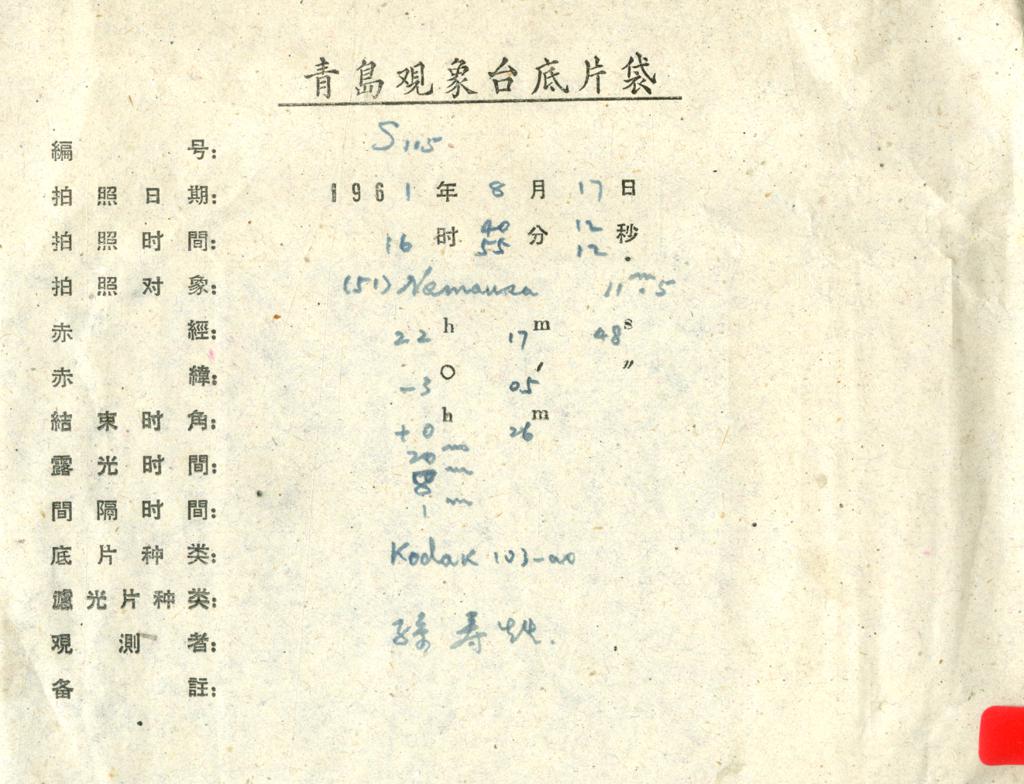 青島观象台底片袋
編号: S115
拍照日期: 1961年8月17日
拍照时間: 16时40分12秒
55 12
拍照对象: (51) Nemausa 11m.5
赤經: 22h 17m 48s
赤緯: -3° 05′ ″
結束时角: +0h 26m
露光时間: 20m
8m
間隔时間: 1m
底片种类: Kodak 103-ao
濾光片种类:
观測者: 孫寿
备註: